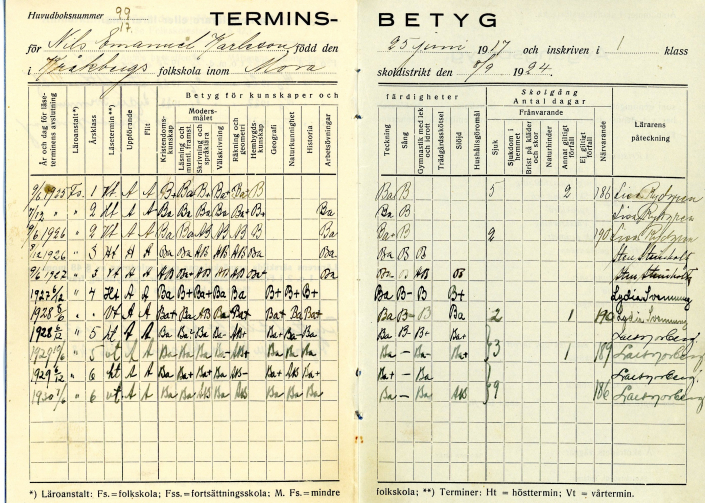 Huvudboksnummer 99/17.
TERMINS-
BETYG
för Nils Emanuel Karlsson, född den
25 juni 1917 och inskriven i 1 klass
i Kråkbergs folkskola inom Mora
skoldistrikt den 8/9 1924.
Betyg för kunskaper och
färdigheter
Skolgång
Antal dagar
År och dag för läseterminens avslutning
Läroanstalt*)
Årsklass
Läsetermin**)
Uppförande
Flit
Kristendomskunskap
Modersmålet
Läsning och muntl. framst.
Skrivning och språklära
Välskrivning
Räkning och geometri
Hembygdskunskap
Geografi
Naturkunnighet
Historia
Arbetsövningar
Teckning
Sång
Gymnastik med lek och idrott
Trädgårdsskötsel
Slöjd
Hushållsgöromål
Frånvarande
Sjuk
Sjukdom i hemmet
Brist på kläder och skor
Naturhinder
Annat giltigt förfall
Ej giltigt förfall
Närvarande
Lärarens påteckning
9/6 1925 Fs. 1 Vt A A B+ Ba B+ Ba+ Ba B
Ba B 5 2 186
7/12 " " 2 Ht A A B+ Ba Ba Ba Ba+ B+ Ba
Ba B
9/6 1926 " 2 Vt A A Ba Ba AB AB B B Ba
Ba+ B 2 190
8/12 1926 " 3 Ht A A Ba Ba AB AB Ba Ba Ba
Ba B B
9/6 1927 " 3 Vt A A AB Ba+ AB AB Ba+ Ba+ Ba
Ba B AB AB
1927 6/12 " 4 Ht A A B+ B+ Ba+ Ba Ba B+ B+ B+
Ba B- B B+ Lydia Svennung
1928 " Vt A A Ba+ Ba Ba+ Ba+ Ba+ Ba+
Ba B- B Ba 2 1 190 Lydia Svennung
1928 6/12 " 5 ht A A Ba Ba Ba Ba Ba+ Ba-
Ba B B+ Ba+
1929 " 5 vt A A Ba Ba Ba Ba AB+ Ba Ba Ba
Ba - Ba- Ba+ 3 1 189
1929 6/12 " 6 ht A A Ba Ba+ Ba+ Ba AB- Ba+ AB Ba+
Ba+ - Ba
1930 " 6 vt A A Ba Ba AB Ba AB Ba Ba Ba
Ba - Ba- AB 9 186
*) Läroanstalt: Fs.=folkskola; Fss.=fortsättningsskola; M. Fs.=mindre
folkskola; **) Terminer: Ht = hösttermin; Vt = vårtermin.